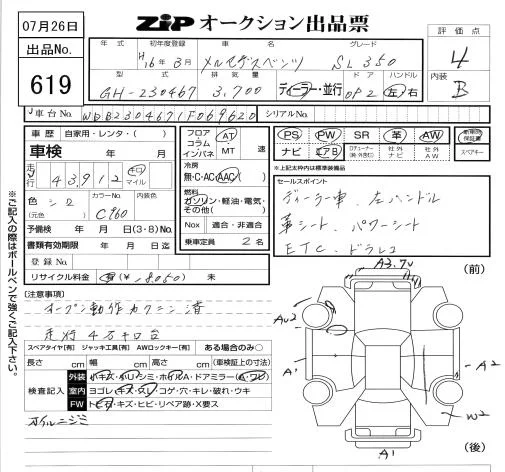 07月26日
出品No.
619
ZiP オークション出品票
評価点
4
内装
B
年式 初年度登録 車名 グレード
H16年3月 メルセデスベンツ SL350
型式 排気量 ドア ハンドル
GH-230467 3,700 ディーラー・並行 OP2 左・右
車台No. WDB2304671F069620 シリアルNo.
車歴 自家用・レンタ・( )
車検 年 月
走行 43,912 キロ マイル
色 シロ カラーNo. C960 内装色
(元色)
予備検 年 月 日(3・8)No.
書類有効期限 年 月 日迄
登録No.
リサイクル料金 有(¥ 18,050) 未
フロア コラム インパネ AT MT 速
冷房
無・C・AC・AAC
燃料
ガソリン・軽油・電気・その他( )
Nox 適合・非適合
乗車定員 2名
PS PW SR 革 AW 新車時保証書
ナビ エアB 社外ナビ 社外AW スペアキー
※上記太枠内は標準装備
セールスポイント
ディーラー車、左ハンドル
革シート、パワーシート
ETC、ドラレコ
[注意事項]
オープン動作カクニン済
走行4万キロ台
スペアタイヤ[有] ジャッキ工具[有] AWロックキー[有] ある場合のみ○
長さ cm 幅 cm 高さ cm (車検証上の寸法)
検査記入
外装 小キズ・小ハシミ・ホイルA・ドアミラー(A・ワレ)
室内 ヨゴレ・キズ・スレ・コゲ・穴・キレ・破れ・ウキ
FW トビ石・キズ・ヒビ・リペア跡・X要ス
オイルニジミ
※ご記入の際はボールペンで強くご記入下さい。
(前)
A3.7U
AU2
A1
A2
W2
A1
(後)